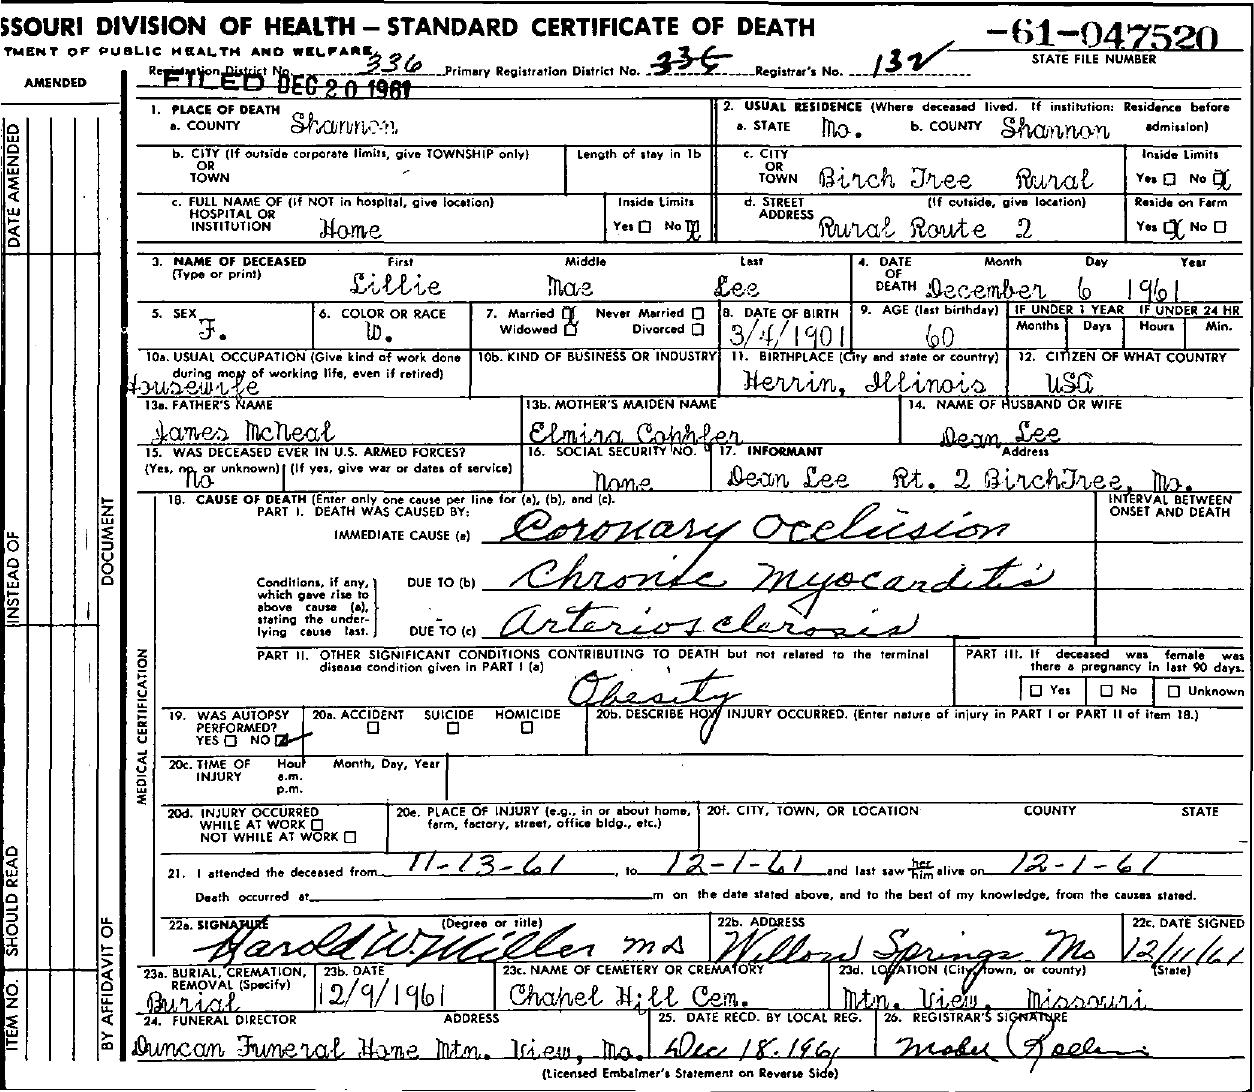 SSOURI DIVISION OF HEALTH — STANDARD CERTIFICATE OF DEATH -61-047520
TMENT OF PUBLIC HEALTH AND WELFARE STATE FILE NUMBER
AMENDED
Registration District No. 336 Primary Registration District No. 336 Registrar's No. 132
FILED DEC 20 1961
1. PLACE OF DEATH
a. COUNTY Shannon
2. USUAL RESIDENCE (Where deceased lived. If institution: Residence before admission)
a. STATE Mo. b. COUNTY Shannon
b. CITY (If outside corporate limits, give TOWNSHIP only)
OR
TOWN
Length of stay in 1b
c. CITY
OR
TOWN Birch Tree Rural
Inside Limits
Yes ☐ No ☒
c. FULL NAME OF (if NOT in hospital, give location)
HOSPITAL OR
INSTITUTION Home
Inside Limits
Yes ☐ No ☒
d. STREET (If outside, give location)
ADDRESS Rural Route 2
Reside on Farm
Yes ☒ No ☐
3. NAME OF DECEASED First Middle Last
(Type or print) Lillie Mae Lee
4. DATE Month Day Year
OF
DEATH December 6 1961
5. SEX
F.
6. COLOR OR RACE
W.
7. Married ☒ Never Married ☐
Widowed ☐ Divorced ☐
8. DATE OF BIRTH
3/4/1901
9. AGE (last birthday)
60
IF UNDER 1 YEAR IF UNDER 24 HR
Months Days Hours Min.
10a. USUAL OCCUPATION (Give kind of work done
during most of working life, even if retired)
Housewife
10b. KIND OF BUSINESS OR INDUSTRY
11. BIRTHPLACE (City and state or country)
Herrin, Illinois
12. CITIZEN OF WHAT COUNTRY
USA
13a. FATHER'S NAME
James McNeal
13b. MOTHER'S MAIDEN NAME
Elmira
14. NAME OF HUSBAND OR WIFE
Dean Lee
15. WAS DECEASED EVER IN U.S. ARMED FORCES?
(Yes, no, or unknown) (If yes, give war or dates of service)
No
16. SOCIAL SECURITY NO.
None
17. INFORMANT Address
Dean Lee Rt. 2 BirchTree, Mo.
18. CAUSE OF DEATH (Enter only one cause per line for (a), (b), and (c).
PART I. DEATH WAS CAUSED BY:
INTERVAL BETWEEN
ONSET AND DEATH
IMMEDIATE CAUSE (a) Coronary Occlusion
Conditions, if any,
which gave rise to
above cause (a),
stating the under-
lying cause last.
DUE TO (b) Chronic Myocarditis
DUE TO (c) Arteriosclerosis
PART II. OTHER SIGNIFICANT CONDITIONS CONTRIBUTING TO DEATH but not related to the terminal
disease condition given in PART I (a)
Obesity
PART III. If deceased was female was
there a pregnancy in last 90 days.
☐ Yes ☐ No ☐ Unknown
19. WAS AUTOPSY
PERFORMED?
YES ☐ NO ☑
20a. ACCIDENT SUICIDE HOMICIDE
☐ ☐ ☐
20b. DESCRIBE HOW INJURY OCCURRED. (Enter nature of injury in PART I or PART II of item 18.)
20c. TIME OF Hour Month, Day, Year
INJURY a.m.
p.m.
20d. INJURY OCCURRED
WHILE AT WORK ☐
NOT WHILE AT WORK ☐
20e. PLACE OF INJURY (e.g., in or about home,
farm, factory, street, office bldg., etc.)
20f. CITY, TOWN, OR LOCATION COUNTY STATE
21. I attended the deceased from 11-13-61, to 12-1-61 and last saw her/him alive on 12-1-61
Death occurred at m on the date stated above, and to the best of my knowledge, from the causes stated.
22a. SIGNATURE (Degree or title)
Harold W. Miller MD
22b. ADDRESS
Willow Springs Mo
22c. DATE SIGNED
12/11/61
23a. BURIAL, CREMATION,
REMOVAL (Specify)
Burial
23b. DATE
12/9/1961
23c. NAME OF CEMETERY OR CREMATORY
Chapel Hill Cem.
23d. LOCATION (City, town, or county) (State)
Mtn. View, Missouri
24. FUNERAL DIRECTOR ADDRESS
Duncan Funeral Home Mtn. View, Mo.
25. DATE RECD. BY LOCAL REG.
Dec 18, 1961
26. REGISTRAR'S SIGNATURE
Mabel
(Licensed Embalmer's Statement on Reverse Side)
DATE AMENDED
INSTEAD OF
DOCUMENT
MEDICAL CERTIFICATION
SHOULD READ
ITEM NO.
BY AFFIDAVIT OF